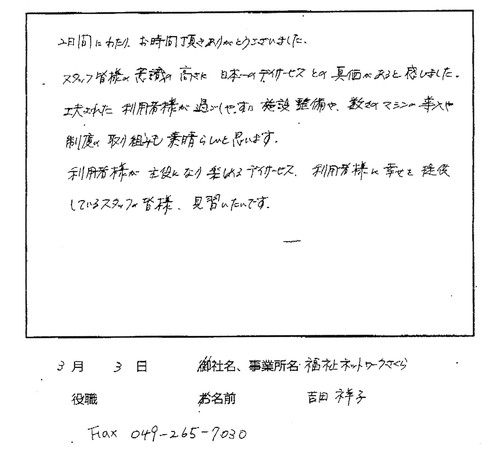 2日間にわたり、お時間頂きありがとうございました。
スタッフ皆様の意識の高さに 日本一のデイサービスとの真価があると感じました。
工夫された 利用者様が過ごしやすい施設整備や、数々のマシンの導入や
制度の取り組みも素晴らしいと思います。
利用者様が主役になり楽しめるデイサービス、利用者様に幸せを提供
しているスタッフの皆様、見習いたいです。
3月 3日 御社名、事業所名 福祉ネットワークさくら
役職 お名前 吉田 祥子
Fax 049-265-7030